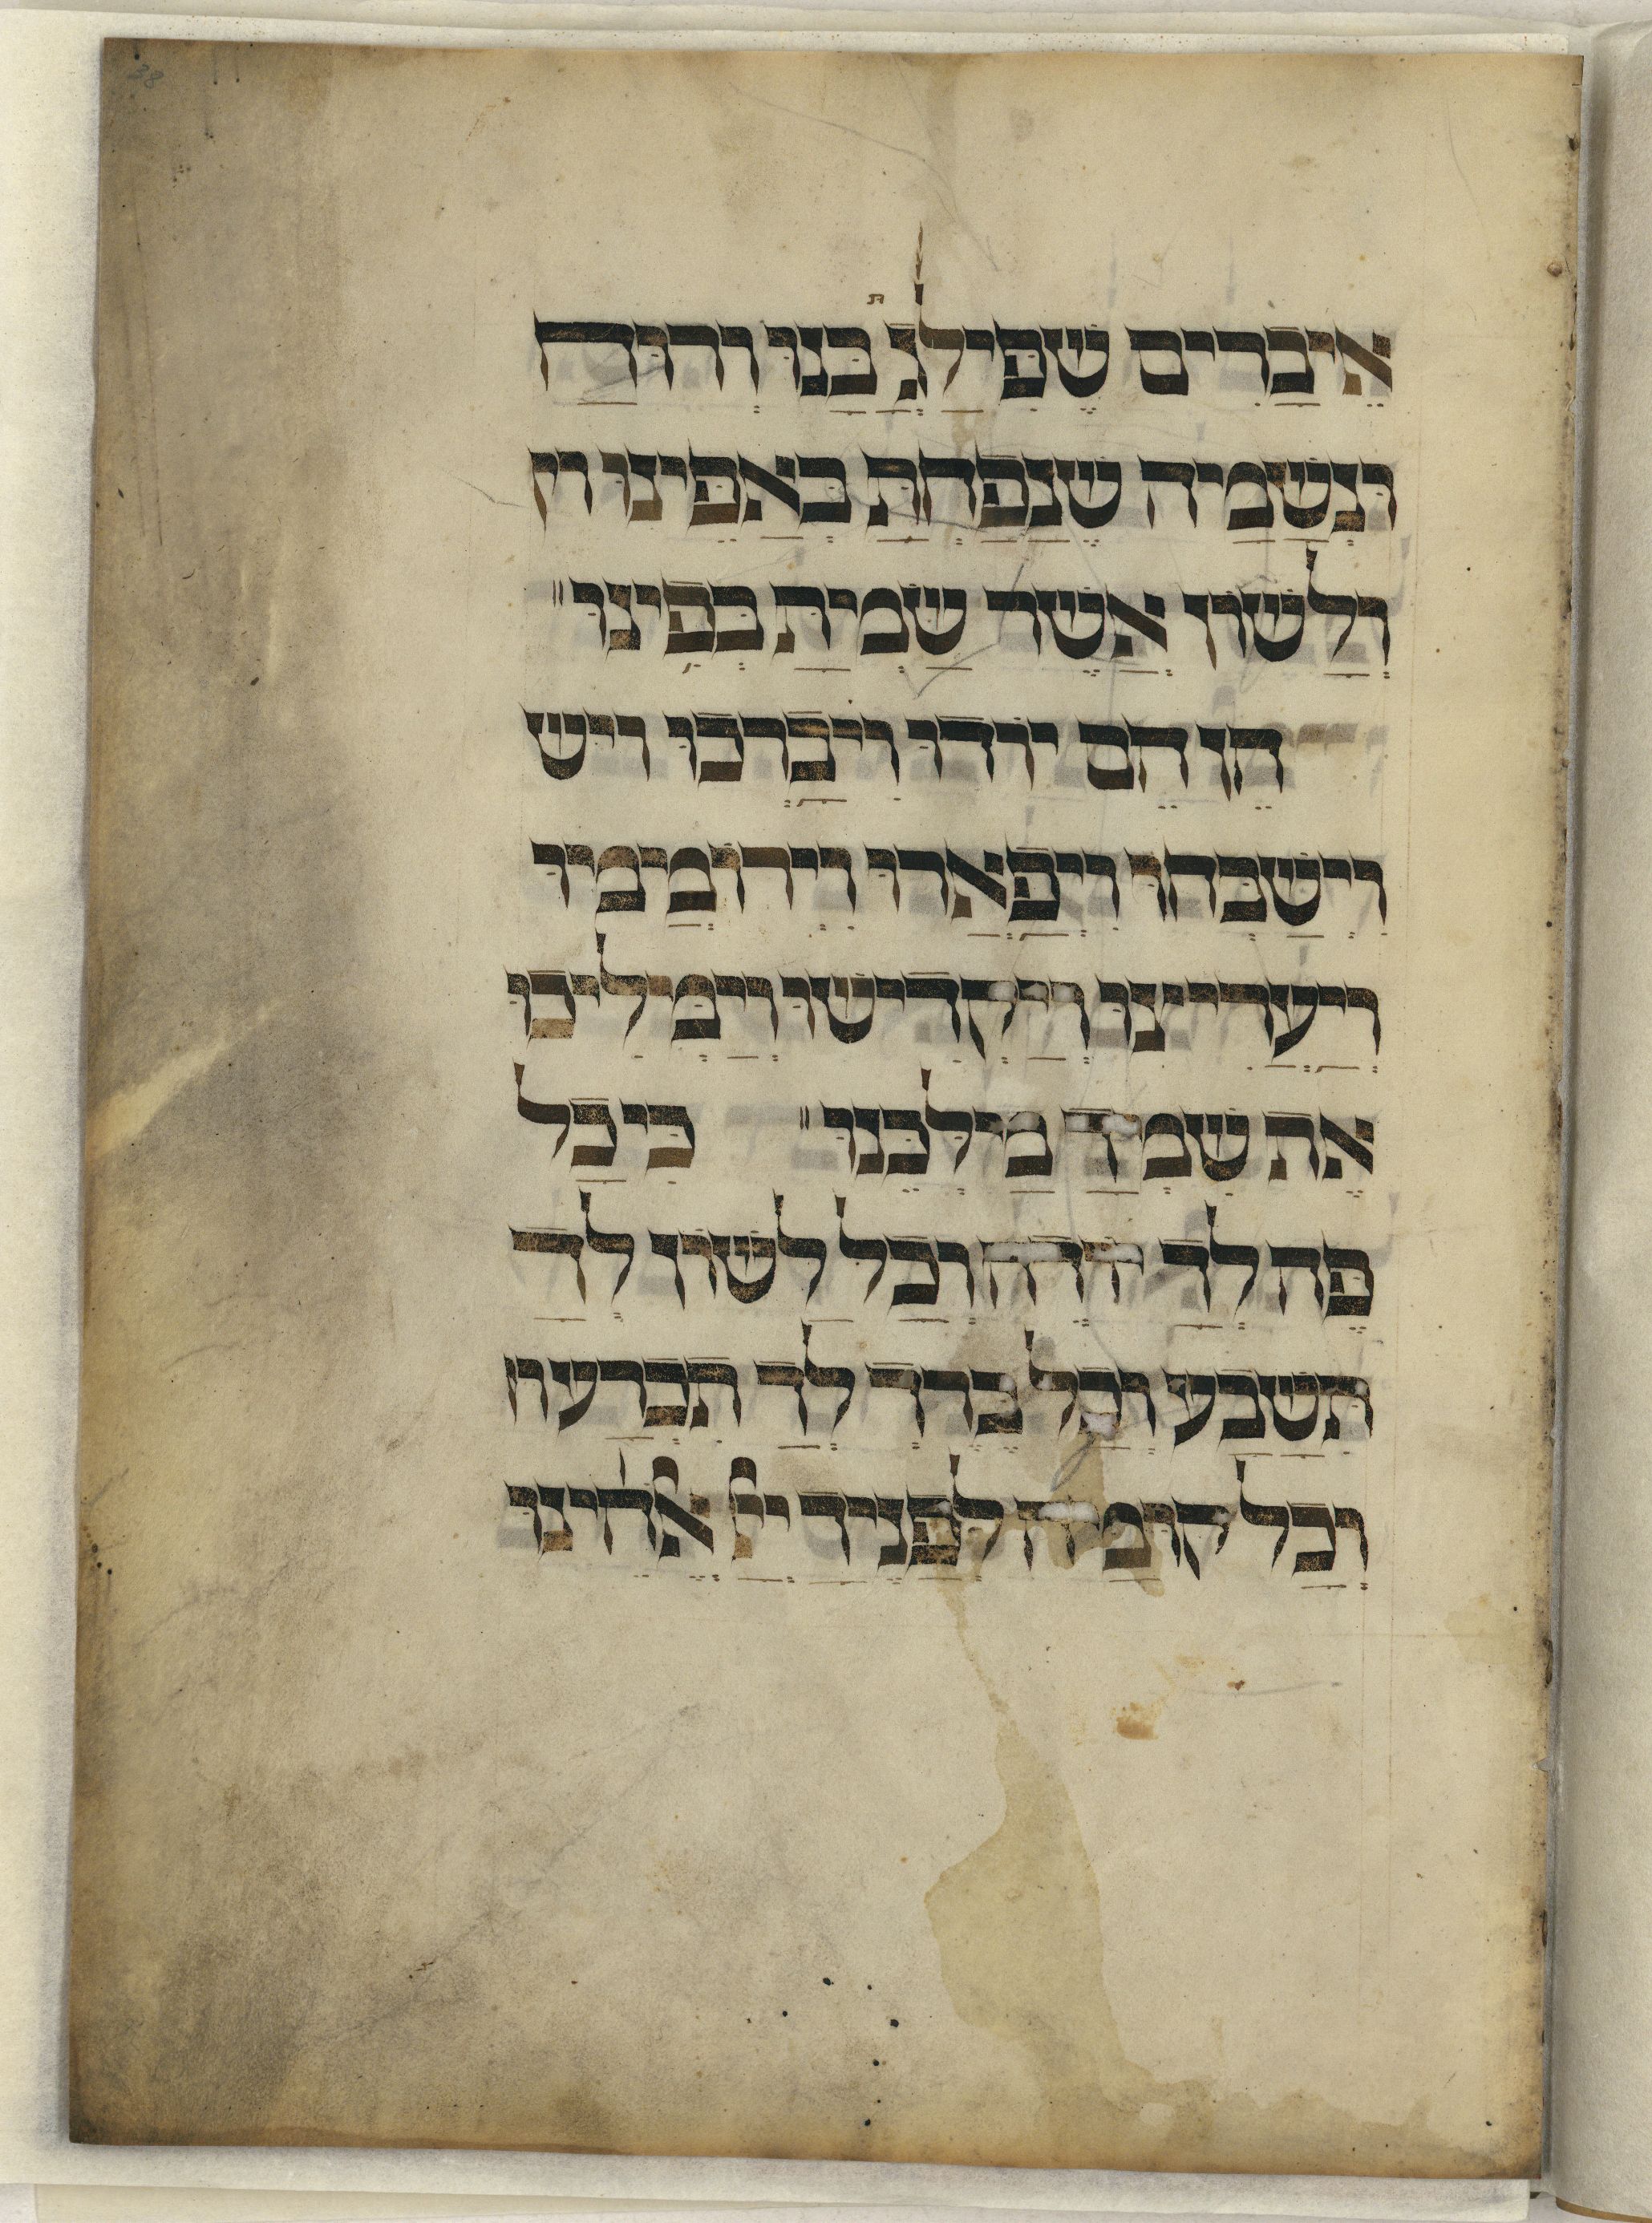 38
אֵיבָרִים שֶׁפִּילַגְתָּ בָּנוּ וְרוּחַ
וּנְשָׁמָיה שֶׁנָפַחְתָּ בְּאַפֵּינוּ וְן
וְלָשׁוֹן אֲשֶׁר שָׂמְיתָ בְּפִינוּ׃
הֵן הֵם יוֹדוּ וִיבָרְכוּ ויש
וִישַׁבְּחוּ וִיפָאֲרוּ וִירוֹמְמִיוּ
וְיַעֲרִיצוּ וְיַקְדִישׁוּ וְיַמְלִיכוּ
אֶת שִׁמְךָ מַילְכֵּנוּ׃ כִּי כָל
פֶּה לְךָ יוֹדֶה וְכָל לָשׁוֹן לְךָ
תִּשָׁבַע וְכָל בֶּרֶךְ לְךָ תִכְרַע וק
וְכָל קוֹמָה לְפָנֶיךָ יי אֱלֹהֵינוּ